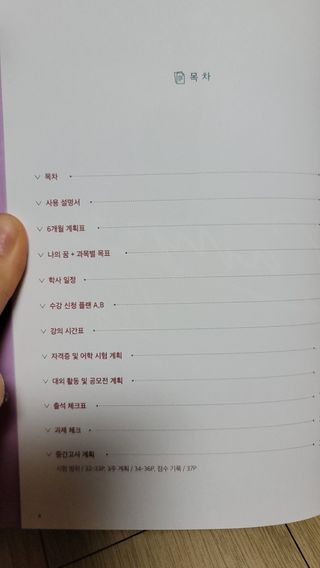 목 차
목차
사용 설명서
6개월 계획표
나의 꿈 + 과목별 목표
학사 일정
수강 신청 플랜 A,B
강의 시간표
자격증 및 어학 시험 계획
대외 활동 및 공모전 계획
출석 체크표
과제 체크
중간고사 계획
시험 범위 / 32-33P, 3주 계획 / 34-36P, 점수 기록 / 37P